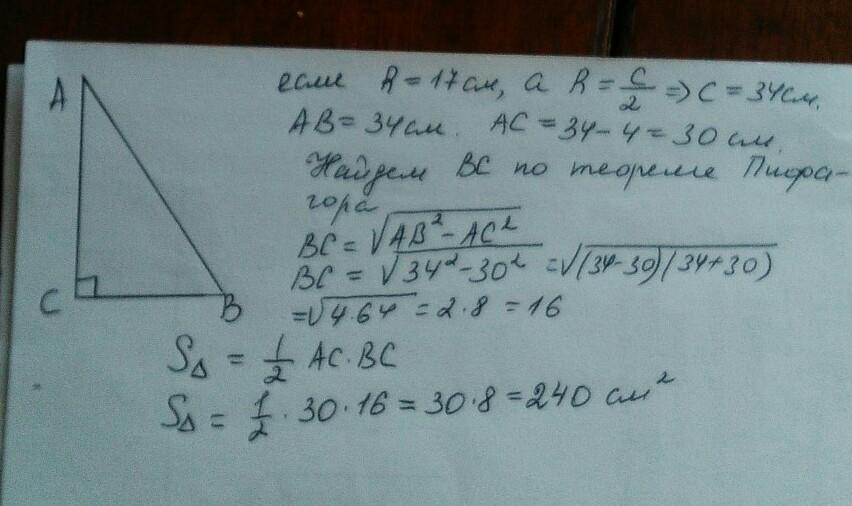 если R = 17 см, а R = c/2 => c = 34 см.
AB = 34 см. AC = 34 - 4 = 30 см.
Найдем BC по теореме Пифа-
гора
BC = √(AB² - AC²)
BC = √(34² - 30²) = √((34-30)(34+30))
= √(4·64) = 2·8 = 16
S△ = 1/2 AC·BC
S△ = 1/2 · 30 · 16 = 30·8 = 240 см²
A
C
B